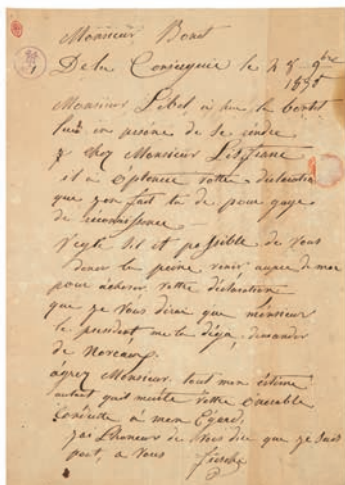 Monsieur Bonet
De la Conciergie le 28 9bre
1835
Monsieur Lebel a hue la bontet
lui en persone de se rendre
chez Monsieur Lisfranc
il a votre declaration
que jen fait de pour gage
de reconnissence
il et possible de vous
doner la peine venir aupre de moi
pour achever votre déclaration
que je vous dirai que monsieur
le president me la déja demander
de Noveaux
agrez Monsieur tout mon estime
autant quil merite votre
conduite a mon Egard,
jai Lhoneur de vous dire que je suis
tout, a vous fieschi